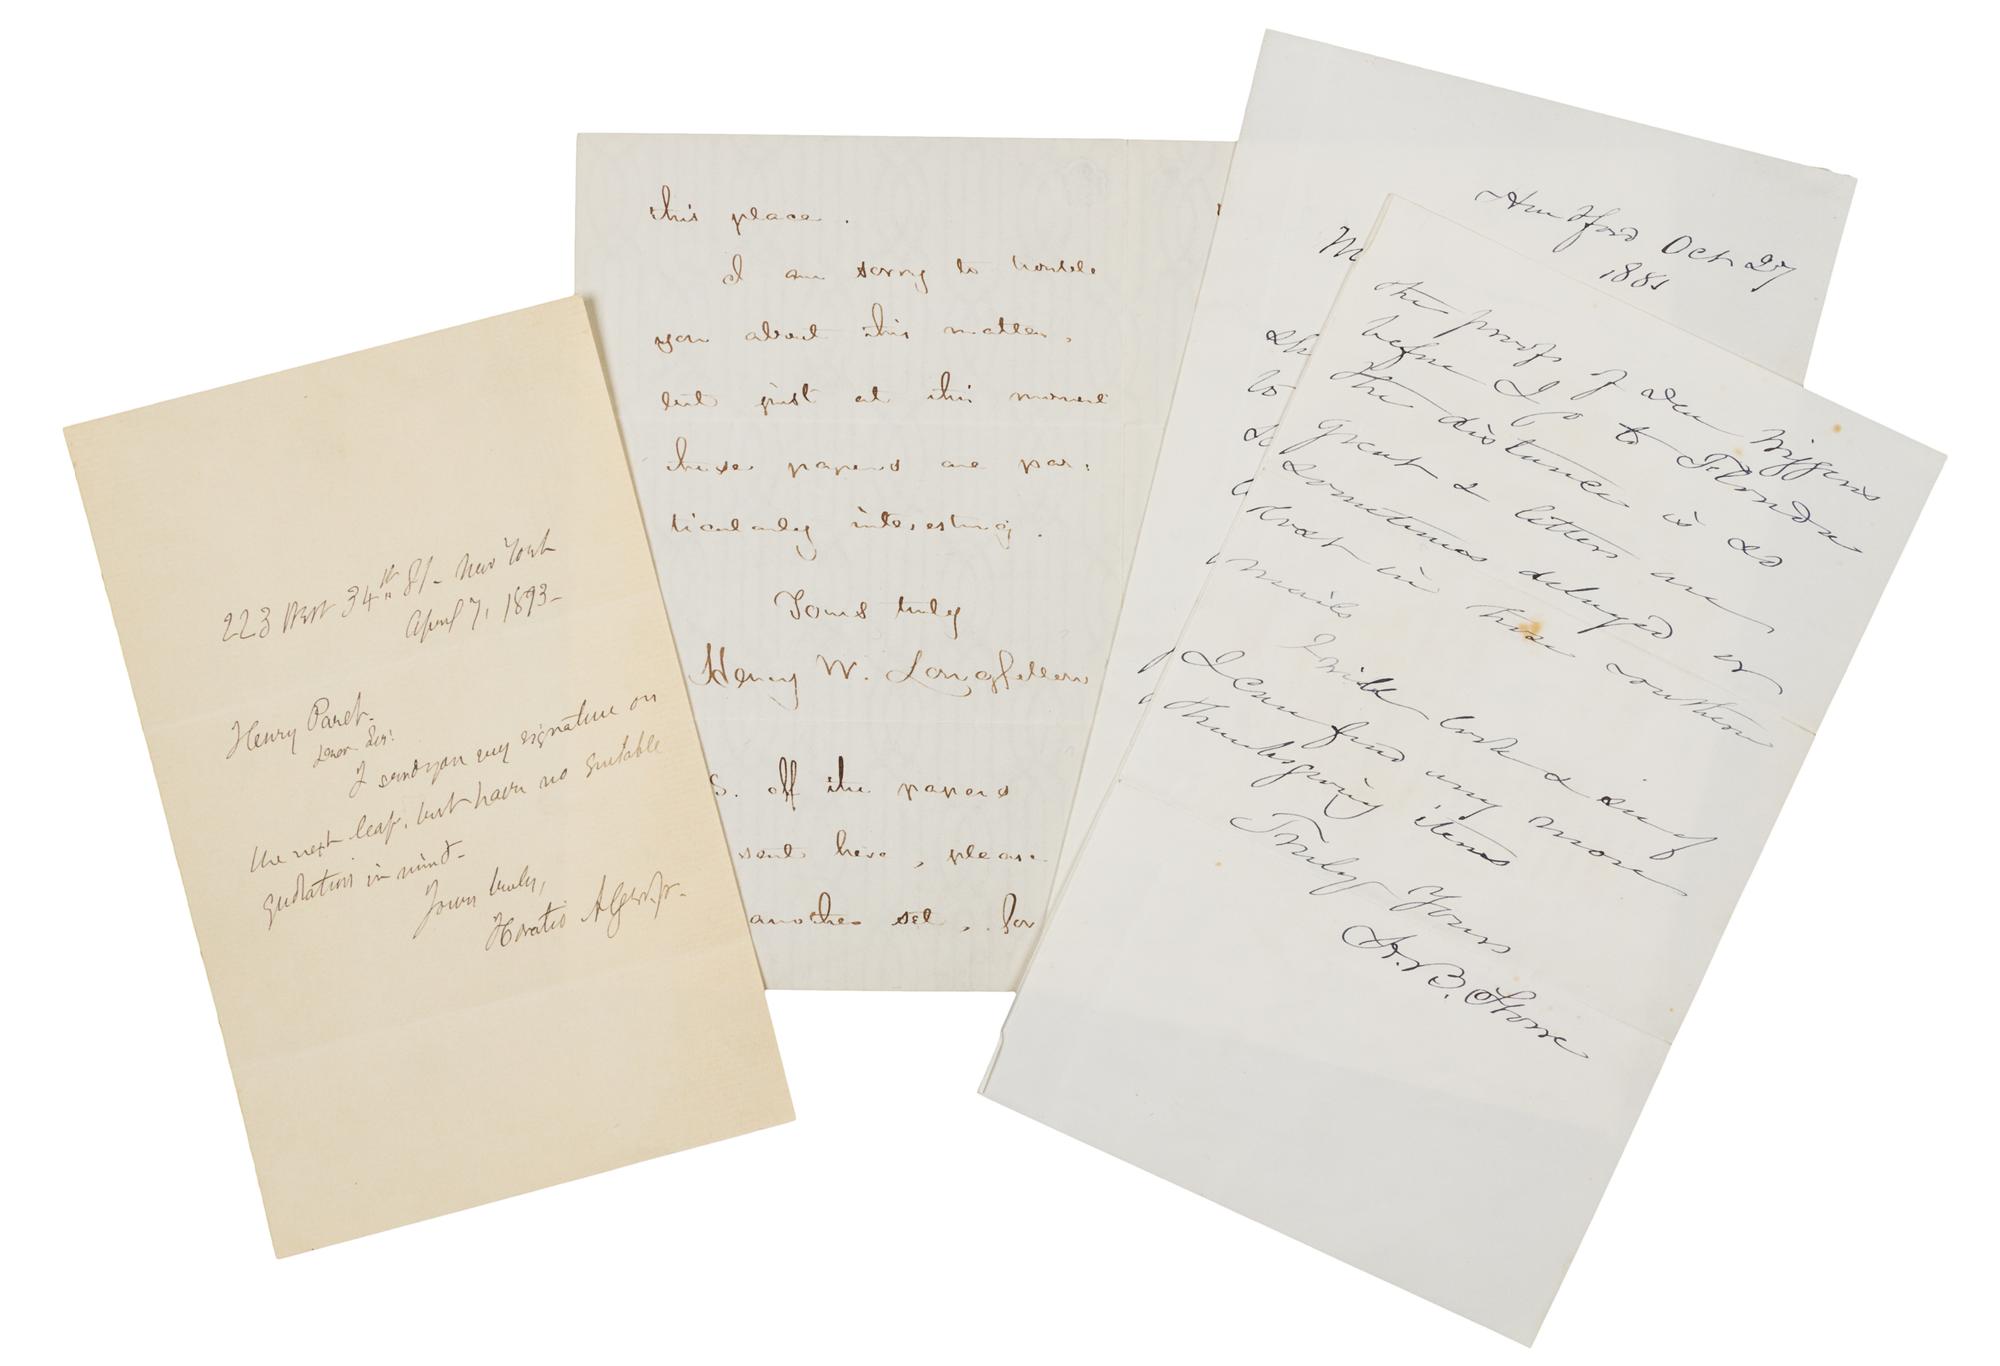 223 West 34th St. New York
April 7, 1893-
Henry Paret.
Dear Sir:
I send you my signature on
the next leaf, but have no suitable
quotation in mind-
Yours truly,
Horatio Alger, Jr.
this place.
I am sorry to trouble
you about this matter,
but just at this moment
these papers are par-
ticularly interesting.
Yours truly
Henry W. Longfellow
S. If the papers
sent here, please
another set, for
Hartford Oct 27
1881
M
sh
to
the proofs of Dea Wiggens
before I go to Florida
the distance is so
great & letters are
sometimes delayed or
lost in those southern
mails
I will look & see if
I can find any more
thanksgiving items
Truly Yours
H. B. Stowe